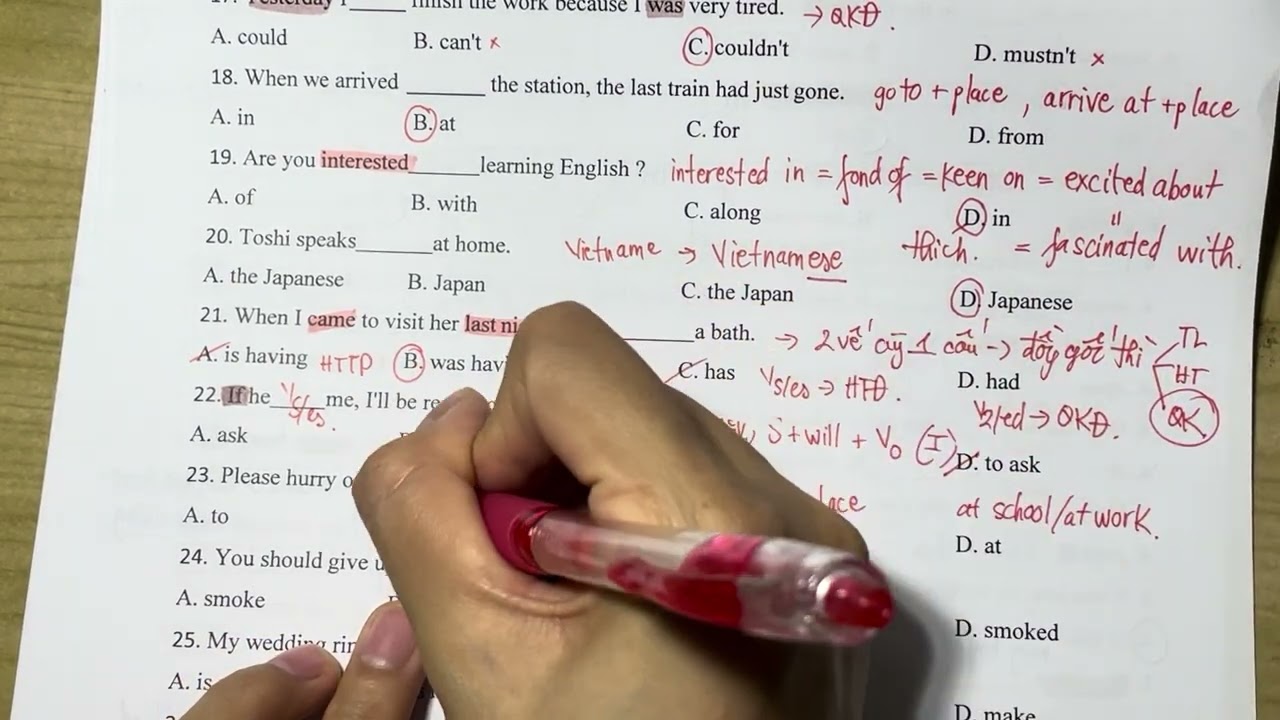 finish the work because I was very tired. → QKĐ.
A. could B. can't x C. couldn't D. mustn't x
18. When we arrived ______ the station, the last train had just gone. go to + place, arrive at + place
A. in B. at C. for D. from
19. Are you interested ______ learning English ? interested in = fond of = keen on = excited about
A. of B. with C. along D. in
20. Toshi speaks ______ at home. Vietname → Vietnamese thich. = fascinated with.
A. the Japanese B. Japan C. the Japan D. Japanese
21. When I came to visit her last ni ______ a bath. → 2 vế cùng 1 câu → đồng gốc thì TL HT QK
A. is having HTTP B. was hav C. has Vs/es → HTĐ. D. had V2/ed → QKĐ.
22. If he ______ Vs/es. me, I'll be re S + will + Vo (I)
A. ask D. to ask
23. Please hurry o lace at school/at work.
A. to D. at
24. You should give u
A. smoke D. smoked
25. My wedding rin
A. is D. make